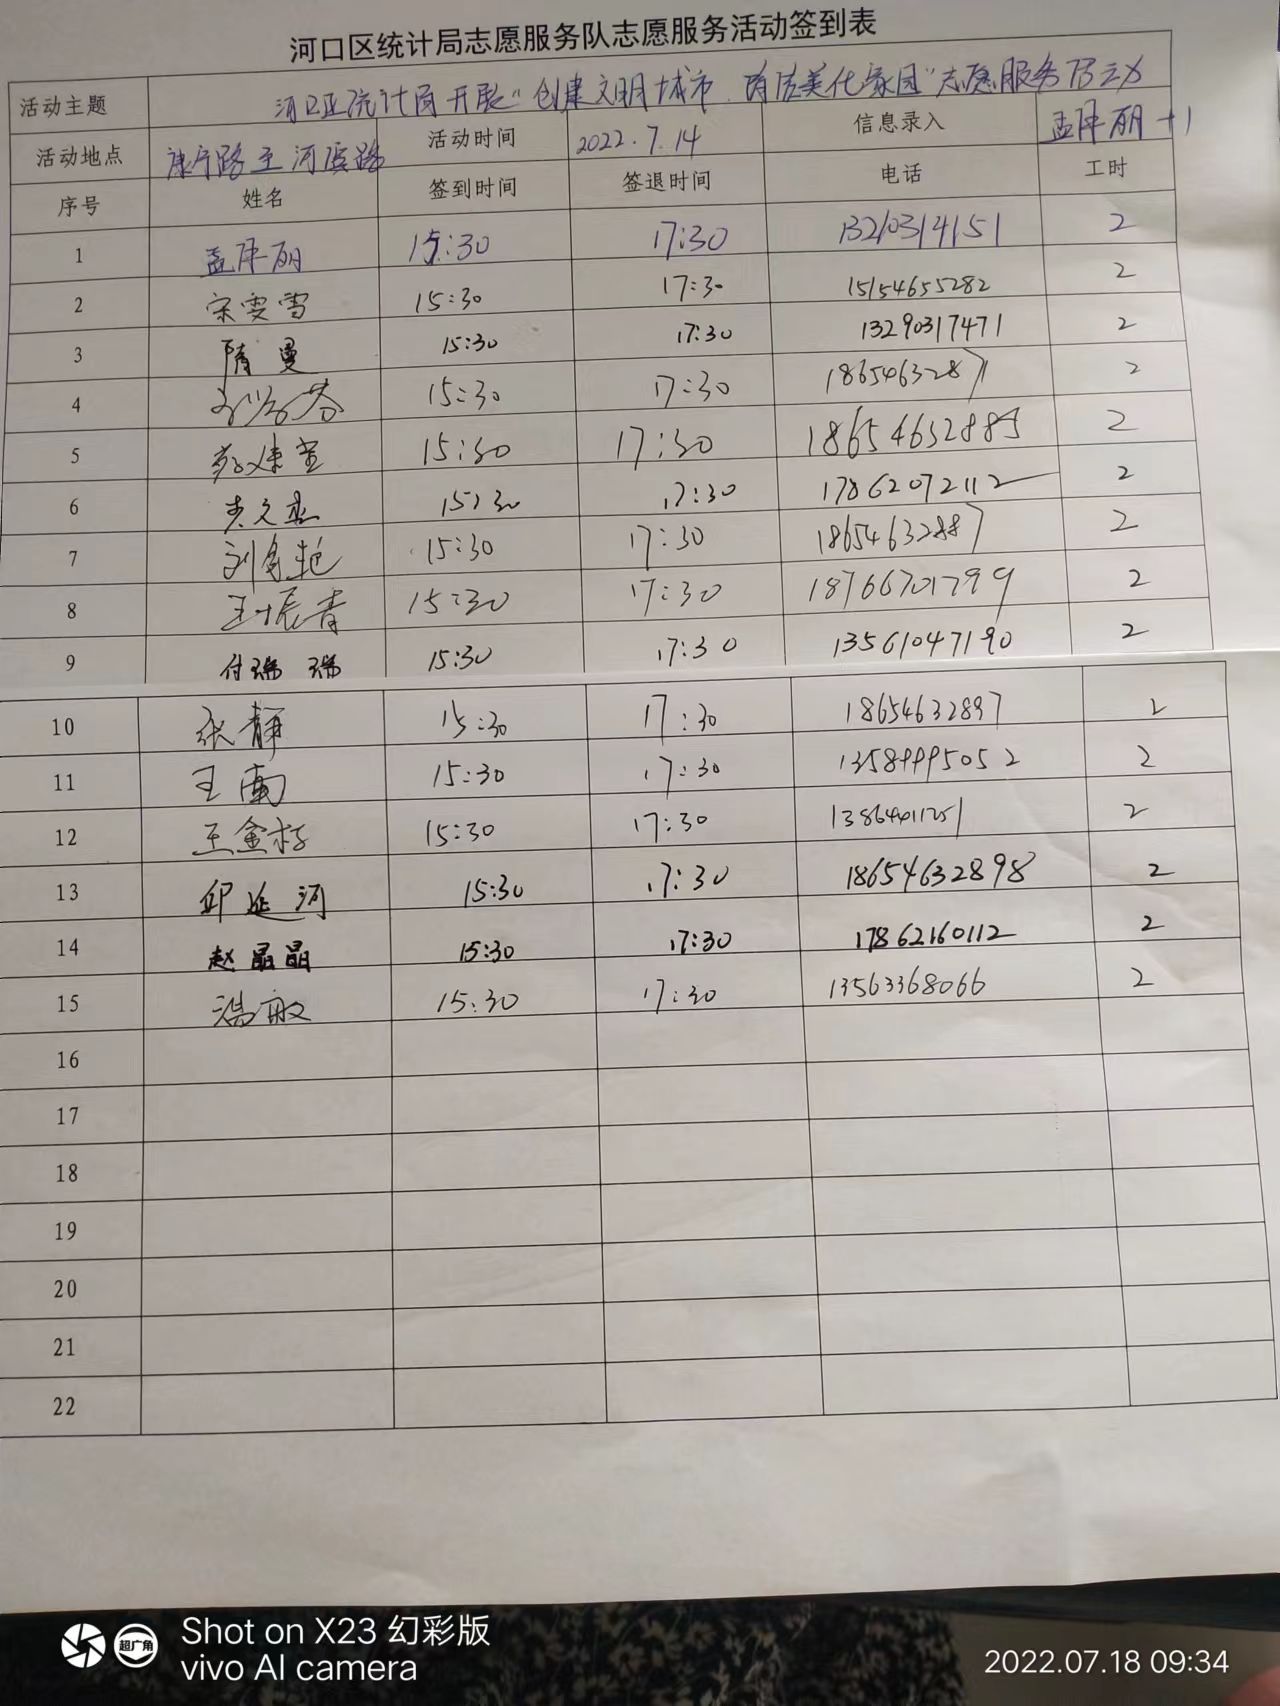 河口区统计局志愿服务队志愿服务活动签到表
活动主题 河口区统计局开展"创建文明城市 清洁美化家园"志愿服务活动
活动地点 活动时间 2022.7.14 信息录入
序号 姓名 签到时间 签退时间 电话 工时
1 15:30 17:30 13210314151 2
2 宋雯雪 15:30 17:30 15154655282 2
3 隋曼 15:30 17:30 13290317471 2
4 15:30 17:30 18654632871 2
5 15:30 17:30 18654632885 2
6 15:30 17:30 17862072112 2
7 15:30 17:30 18654632887 2
8 王振青 15:30 17:30 18766701799 2
9 付瑞瑞 15:30 17:30 13561047190 2
10 张静 15:30 17:30 18654632897 2
11 王南 15:30 17:30 2
12 15:30 17:30 2
13 邱延河 15:30 17:30 18654632898 2
14 赵晶晶 15:30 17:30 17862160112 2
15 15:30 17:30 13563368066 2
16
17
18
19
20
21
22
超广角
Shot on X23 幻彩版
vivo AI camera
2022.07.18 09:34